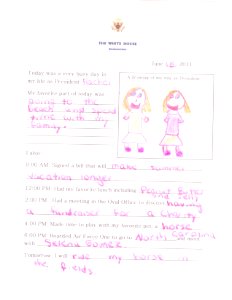 THE WHITE HOUSE
WASHINGTON
June
Today was a very busy day in
my life as President
My favorite part of today was
going to the
beach and spend
time with my
family.
A drawing of me as President
I also:
9:00 AM Signed a bill that will make summer
vacation longer
12:00 PM Had my favorite lunch including Peanut Butter
and Jelly
2:00 PM Had a meeting in the Oval Office to discuss having
a fundraiser for a Charity
4:00 PM Made some time to play with my favorite pet: a horse
6:00 PM Boarded Air Force One to go to North Carolina and meet
with Selena Gomez
Tomorrow, I will ride my horse